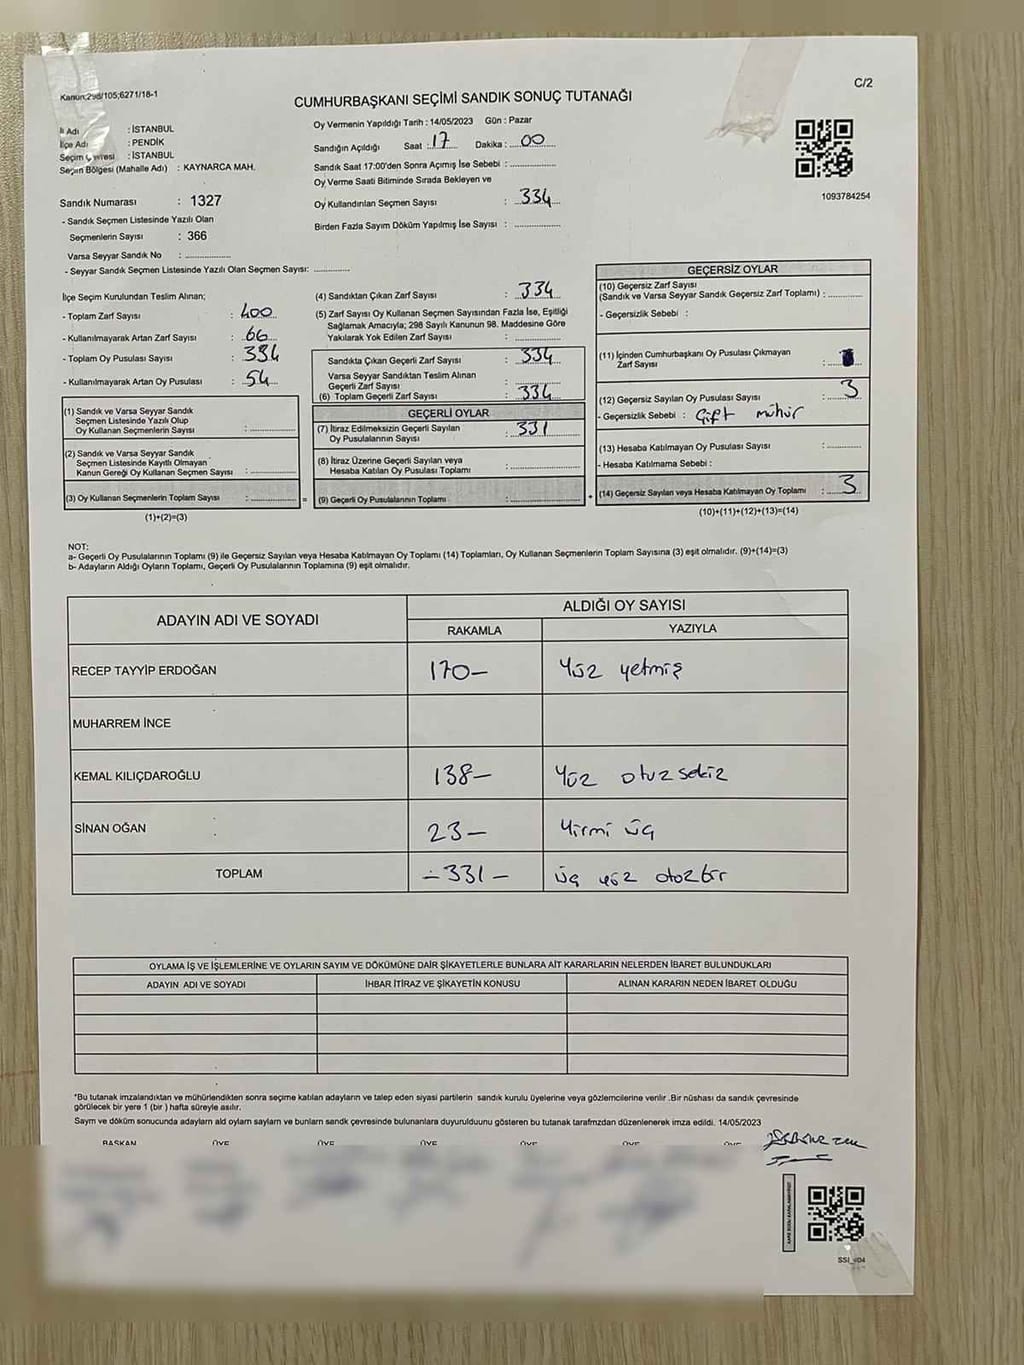 Kanun:298/105;6271/18-1
C/2
CUMHURBAŞKANI SEÇİMİ SANDIK SONUÇ TUTANAĞI
İli Adı : İSTANBUL
İlçe Adı : PENDİK
Seçim Çevresi : İSTANBUL
Seçim Bölgesi (Mahalle Adı) : KAYNARCA MAH.
Sandık Numarası : 1327
- Sandık Seçmen Listesinde Yazılı Olan
Seçmenlerin Sayısı : 366
Varsa Seyyar Sandık No :
- Seyyar Sandık Seçmen Listesinde Yazılı Olan Seçmen Sayısı:
Oy Vermenin Yapıldığı Tarih : 14/05/2023 Gün : Pazar
Sandığın Açıldığı Saat : 17 Dakika : 00
Sandık Saat 17:00'den Sonra Açılmış İse Sebebi :
Oy Verme Saati Bitiminde Sırada Bekleyen ve
Oy Kullandırılan Seçmen Sayısı : 334
Birden Fazla Sayım Döküm Yapılmış İse Sayısı :
1093784254
İlçe Seçim Kurulundan Teslim Alınan;
- Toplam Zarf Sayısı : 400
- Kullanılmayarak Artan Zarf Sayısı : 66
- Toplam Oy Pusulası Sayısı : 334
- Kullanılmayarak Artan Oy Pusulası : 54
(1) Sandık ve Varsa Seyyar Sandık
Seçmen Listesinde Yazılı Olup
Oy Kullanan Seçmenlerin Sayısı :
(2) Sandık ve Varsa Seyyar Sandık
Seçmen Listesinde Kayıtlı Olmayan
Kanun Gereği Oy Kullanan Seçmen Sayısı :
(3) Oy Kullanan Seçmenlerin Toplam Sayısı :
(1)+(2)=(3)
(4) Sandıktan Çıkan Zarf Sayısı : 334
(5) Zarf Sayısı Oy Kullanan Seçmen Sayısından Fazla İse, Eşitliği
Sağlamak Amacıyla; 298 Sayılı Kanunun 98. Maddesine Göre
Yakılarak Yok Edilen Zarf Sayısı :
Sandıkta Çıkan Geçerli Zarf Sayısı : 334
Varsa Seyyar Sandıktan Teslim Alınan
Geçerli Zarf Sayısı :
(6) Toplam Geçerli Zarf Sayısı : 334
GEÇERLİ OYLAR
(7) İtiraz Edilmeksizin Geçerli Sayılan
Oy Pusulalarının Sayısı : 331
(8) İtiraz Üzerine Geçerli Sayılan veya
Hesaba Katılan Oy Pusulası Toplamı :
= (9) Geçerli Oy Pusulalarının Toplamı :
GEÇERSİZ OYLAR
(10) Geçersiz Zarf Sayısı
(Sandık ve Varsa Seyyar Sandık Geçersiz Zarf Toplamı) :
- Geçersizlik Sebebi :
(11) İçinden Cumhurbaşkanı Oy Pusulası Çıkmayan
Zarf Sayısı :
(12) Geçersiz Sayılan Oy Pusulası Sayısı : 3
- Geçersizlik Sebebi : Çift mühür
(13) Hesaba Katılmayan Oy Pusulası Sayısı :
- Hesaba Katılmama Sebebi :
+ (14) Geçersiz Sayılan veya Hesaba Katılmayan Oy Toplamı : 3
(10)+(11)+(12)+(13)=(14)
NOT:
a- Geçerli Oy Pusulalarının Toplamı (9) ile Geçersiz Sayılan veya Hesaba Katılmayan Oy Toplamı (14) Toplamları, Oy Kullanan Seçmenlerin Toplam Sayısına (3) eşit olmalıdır. (9)+(14)=(3)
b- Adayların Aldığı Oyların Toplamı, Geçerli Oy Pusulalarının Toplamına (9) eşit olmalıdır.
ADAYIN ADI VE SOYADI
ALDIĞI OY SAYISI
RAKAMLA YAZIYLA
RECEP TAYYİP ERDOĞAN 170– Yüz yetmiş
MUHARREM İNCE
KEMAL KILIÇDAROĞLU 138– Yüz otuzsekiz
SİNAN OĞAN 23– Yirmi üç
TOPLAM –331– üç yüz otuzbir
OYLAMA İŞ VE İŞLEMLERİNE VE OYLARIN SAYIM VE DÖKÜMÜNE DAİR ŞİKAYETLERLE BUNLARA AİT KARARLARIN NELERDEN İBARET BULUNDUKLARI
ADAYIN ADI VE SOYADI İHBAR İTİRAZ VE ŞİKAYETİN KONUSU ALINAN KARARIN NEDEN İBARET OLDUĞU
*Bu tutanak imzalandıktan ve mühürlendikten sonra seçime katılan adayların ve talep eden siyasi partilerin sandık kurulu üyelerine veya gözlemcilerine verilir .Bir nüshası da sandık çevresinde
görülecek bir yere 1 (bir ) hafta süreyle asılır.
Sayım ve döküm sonucunda adayların ald oyların sayların ve bunların sandk çevresinde bulunanlara duyurulduunu gösteren bu tutanak tarafmzdan düzenlenerek imza edildi. 14/05/2023
BAŞKAN ÜYE ÜYE ÜYE ÜYE ÜYE ÜYE